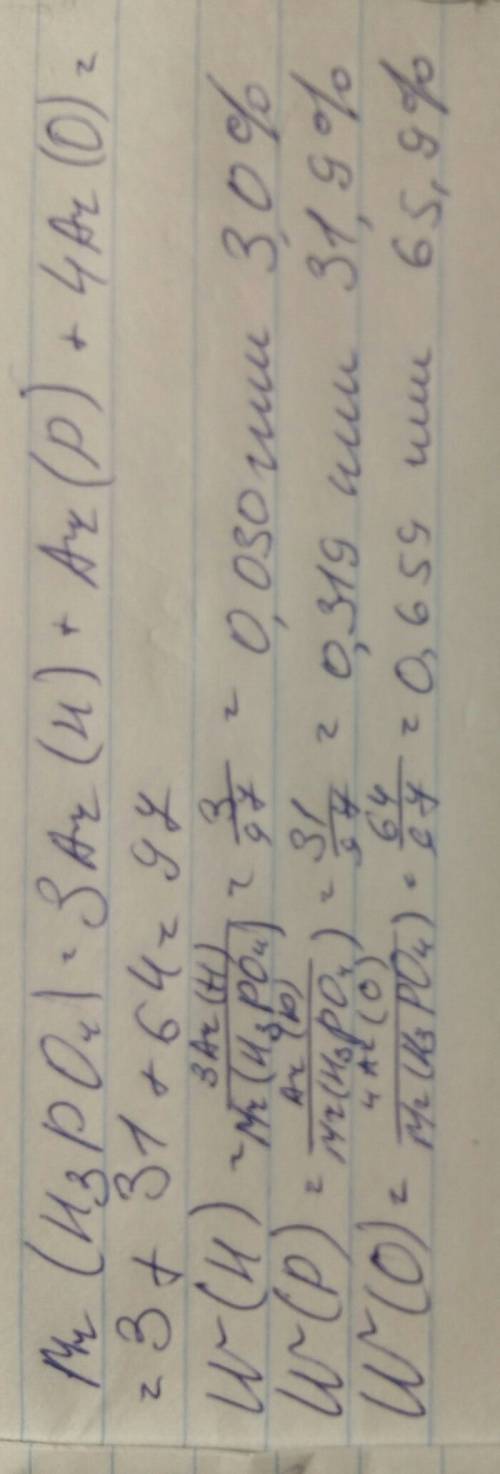 Mr (H₃PO₄) = 3Ar (H) + Ar (P) + 4Ar (O) =
= 3 + 31 + 64 = 97
W (H) = 3Ar(H) / Mr(H₃PO₄) = 3/97 = 0,030 или 3,0%
W (P) = Ar(P) / Mr(H₃PO₄) = 31/97 = 0,319 или 31,9%
W (O) = 4Ar(O) / Mr(H₃PO₄) = 64/97 = 0,659 или 65,9%